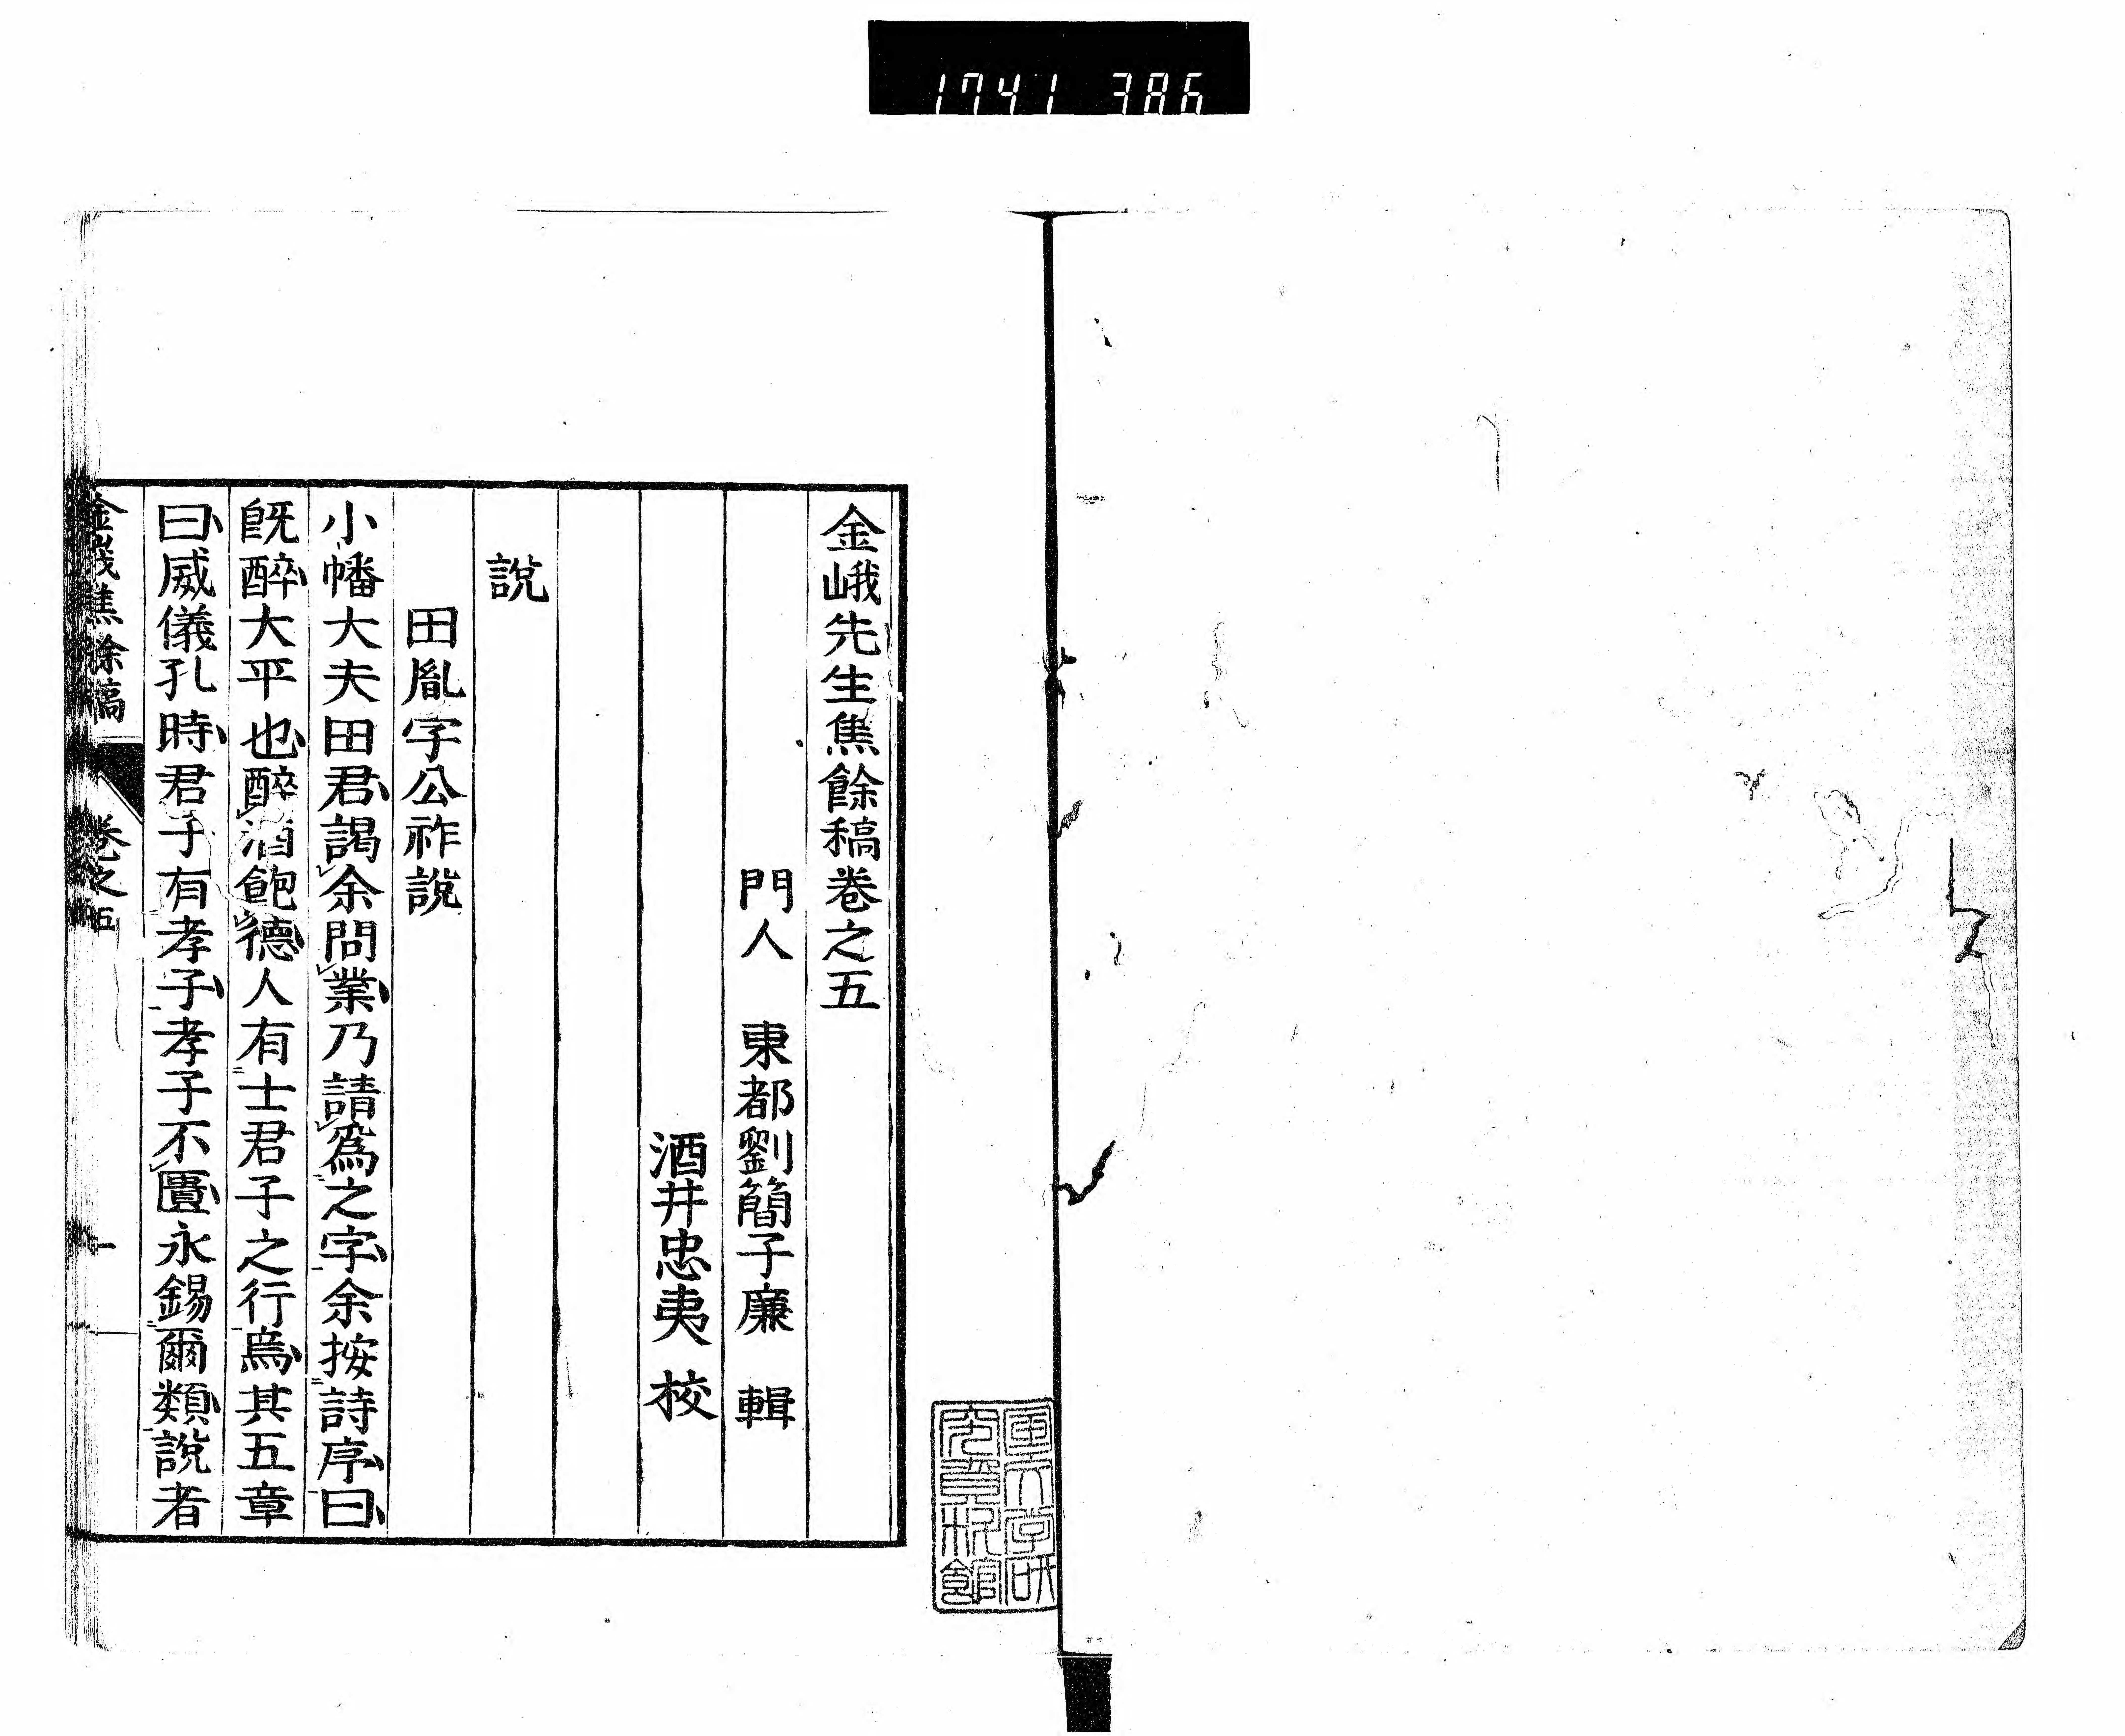 1741 386
金峨先生焦餘稿卷之五
門人　東都劉簡子廉　輯
酒井忠夷　校
說
田胤字公祚說
小幡大夫田君謁余問業乃請爲之字余按詩序曰
旣醉大平也醉酒飽德人有士君子之行焉其五章
曰威儀孔時君子有孝子孝子不匱永錫爾類說者
金峨焦餘稿　卷之五　一
国文学研
究資料館